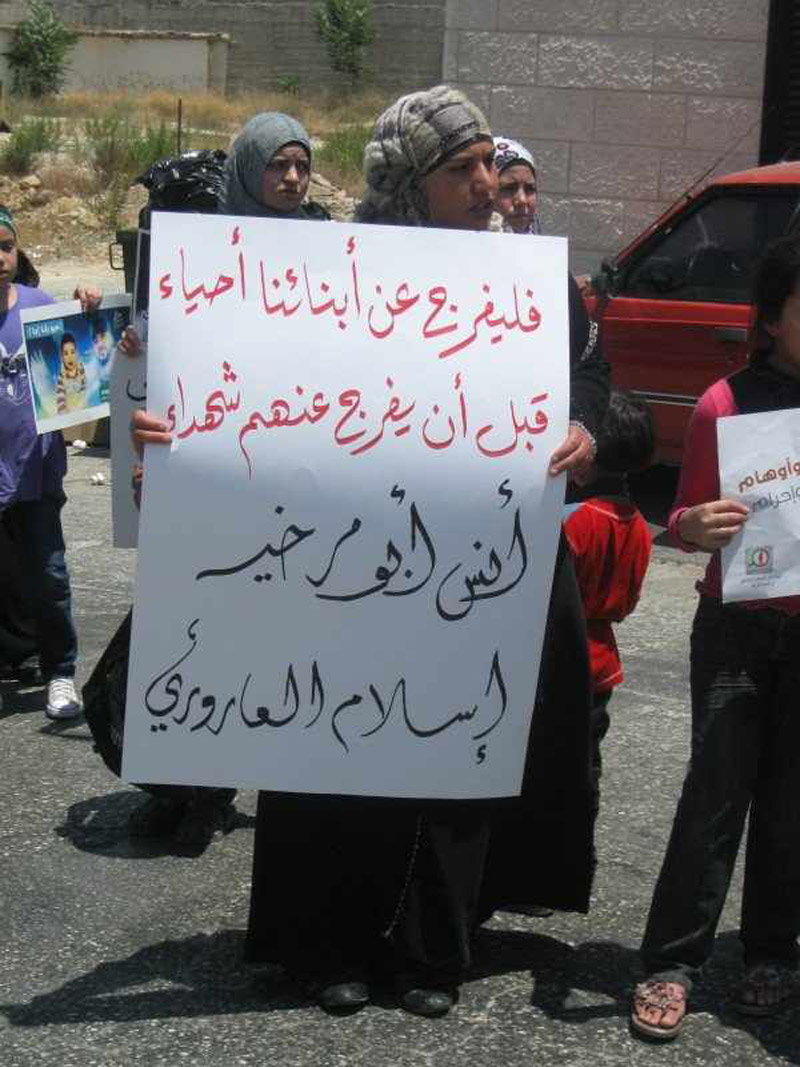 فليفرج عن أبنائنا أحياء
قبل أن يفرج عنهم شهداء
أنس أبو مرخيه
إسلام العاروري
وأوهام